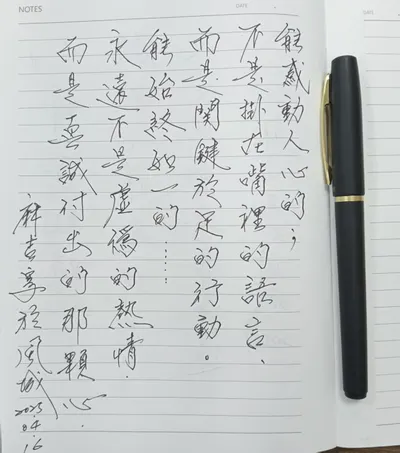 NOTES
DATE
DATE
能感動人心的;
不是掛在嘴裡的語言、
而是關鍵於足的行動。
能始終如一的……
永遠不是虛偽的熱情.
而是真誠付出的那顆心.
麻吉享於風城 2025 04. 16